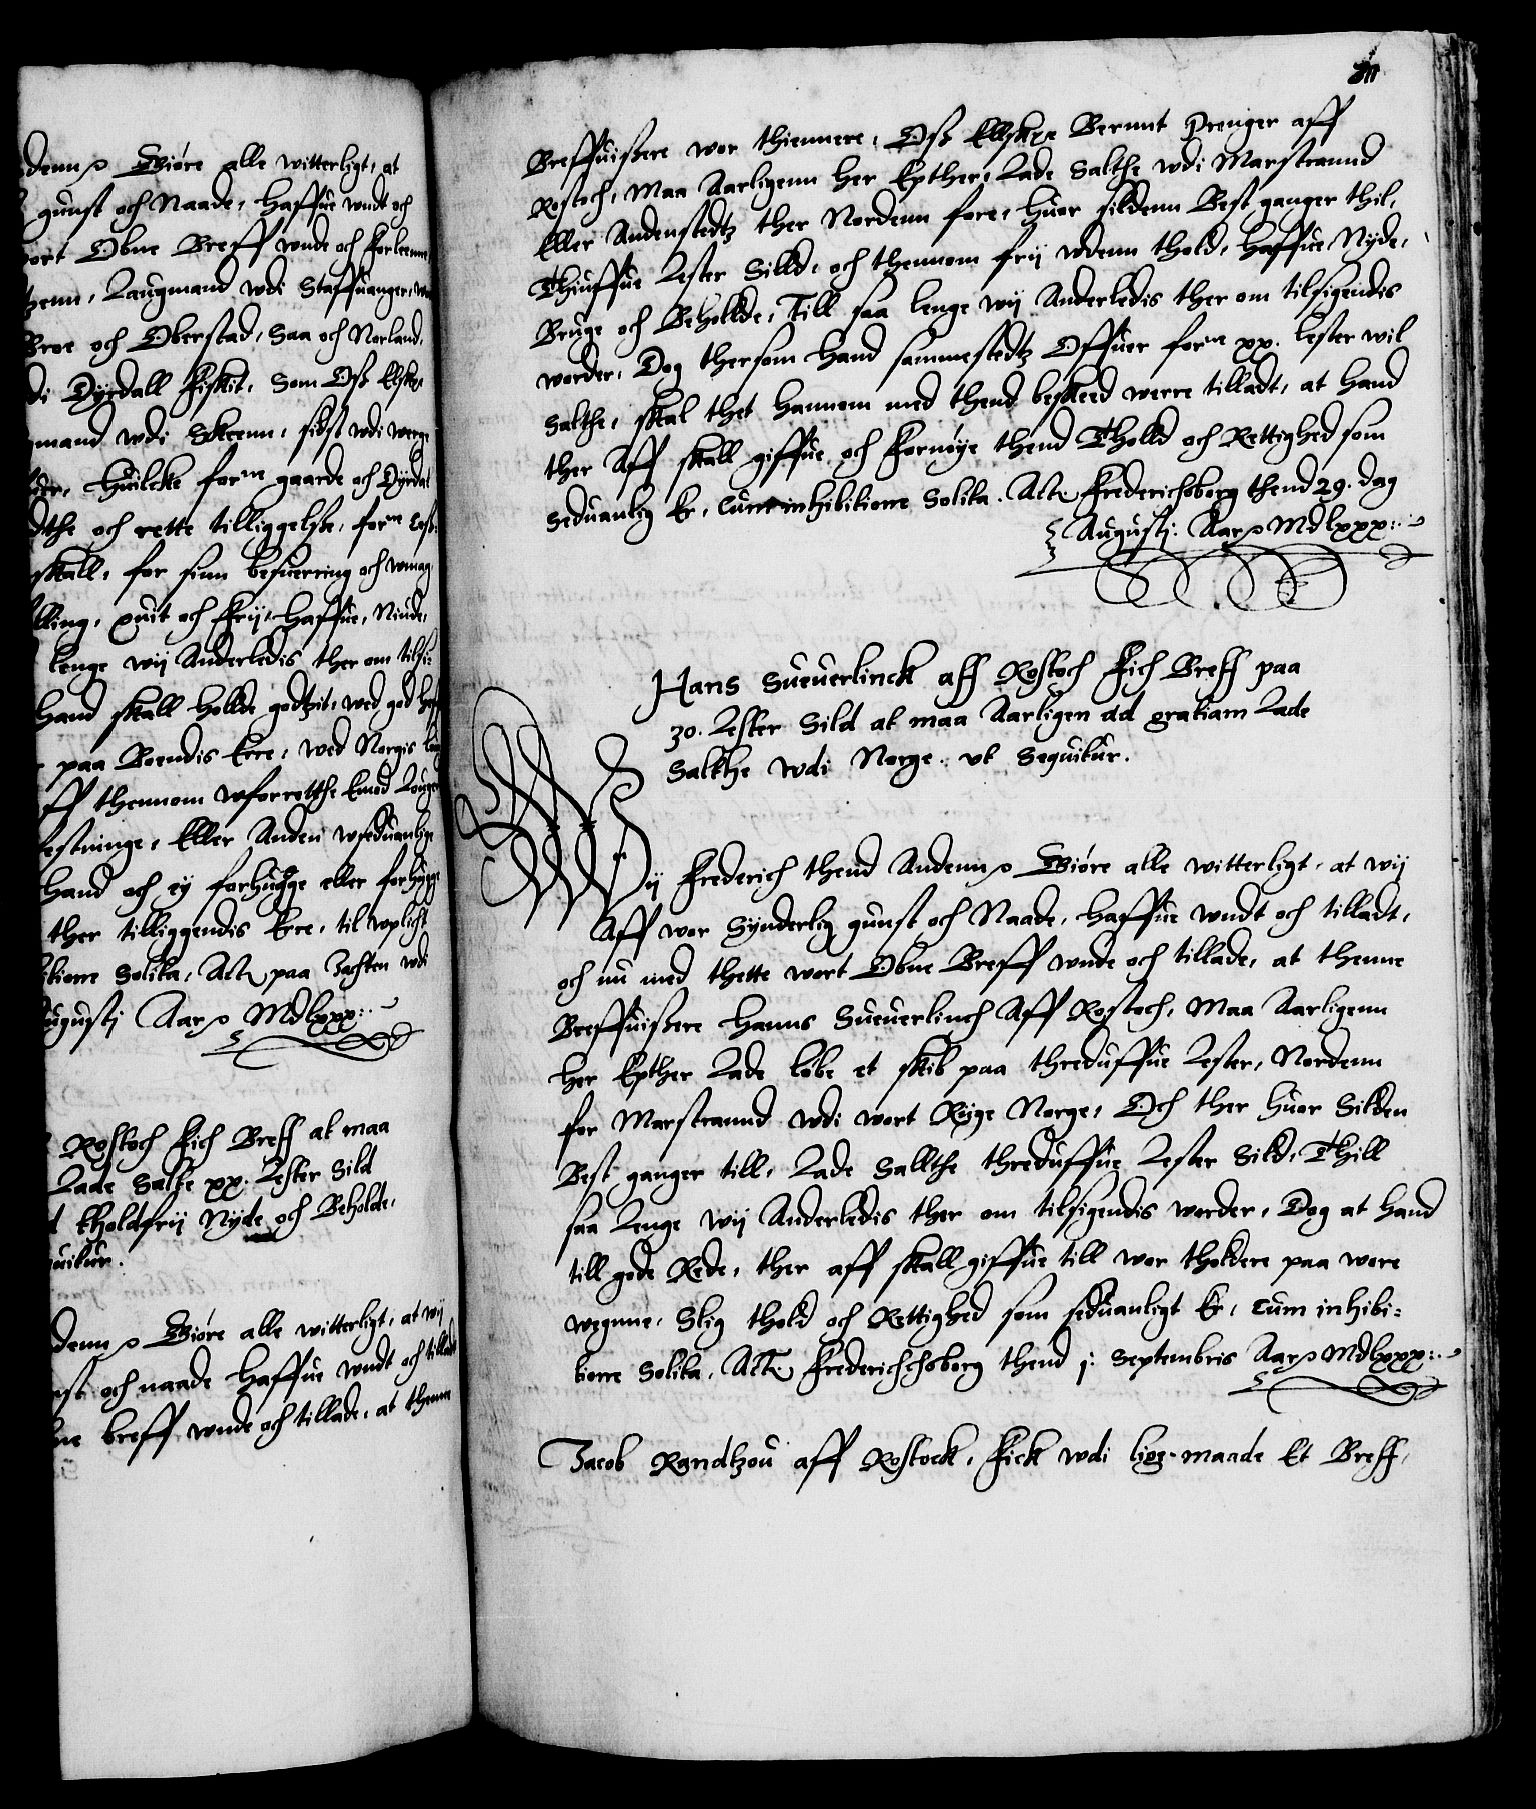 denn etc Giøre alle witterligt, at
gunst och Naade, haffue wndt och
wort Obne Breff wnde och forleene
Laugmand wdi Staffuanger,
Broe och Oberstad, Saa och Norland,
di Dyrdall fiskit, som Oss Elske
mand wdi Skeenn, sidst wdi werge
huilcke forne gaarde och Dyrdal
dthe och rette tilliggelsse, forne
skall, for sinn besuerring och wmag,
quit och frij, haffue, Niude,
lenge wij Anderledis ther om tilsi-
hand skall hollde godtzit, wed god
paa Boendis Ere, wed Norgis
ff thennom wforretthe Emod Lougen
festninge, Eller Anden wseduanlige
hand och ey forhugge eller forhugge
ther tilliggendis Ere, til wplicht
itione Solita, Actum paa Jachten wdi
Augustj Aar etc Mdlxxx.
Rostoch fich Breff at maa
Lade Salte xx. Lester Sild
tholdfrij Nyde och Beholde,
quitur.
denn etc Giøre alle witterligt, at wij
nst och naade haffue wndt och tilladt
ne breff wnde och tillade, at thenne
Breffuissere wor thiennere, Oss Ellskee Bernnt Prenger aff
Rostoch, Maa Aarligenn her Epther, Lade Salthe wdi Marstrannd
Eller Andenstedtz ther Nordenn fore, huor sildenn Best ganger thil,
Thiuffue Lester Silld, och thennom frij wdenn thold, haffue, Nyde,
Bruge och Beholde, Till saa lenge wij Anderledis ther om tilsigendis
worder, Dog thersom hand sammestedtz Offuer forne xx. lester wil
Salthe, skal thet hannom med thend beskeed werre tilladt, at hand
ther Aff skall giffue och fornøye thend Tholld och Rettighed som
Seduanlig Er, Cum inhibitione Solita. Actum Frederichsborg thend 29. dag
Augustj. Aar etc Mdlxxx.
Hans Sueuerlinck aff Rostoch fich Breff paa
30. Lester Sild at maa Aarligen ad gratiam Lade
Salthe wdi Norge. vt Sequitur.
Wij Frederich thend Andenn etc Giøre alle witterligt, at wij
Aff wor Synderlig gunst och Naade, haffue wndt och tilladt,
och nu med thette wort Obne Breff wnde och tillade, at thenne
Breffuissere Hanns Sueuerlinch Aff Rostoch, Maa Aarligenn
her Epther Lade løbe et skib paa threduffue Lester, Nordenn
for Marstrannd wdi wort Rige Norge, Och ther huor Silden
Best ganger till, Lade Sallthe threduffue Lester Sild, Thill
saa Lenge wij Anderledis ther om tilsigendis worder, Dog at hand
till gode Rede, ther aff skall giffue till wor tholdere paa wore
wegnne, Slig thold och Rettighed som seduanligt Er, Cum inhibi-
tione Solita. Actum Frederichschsborg thend j. Septembris Aar etc Mdlxxx.
Jacob Randtzou aff Rostock, fick wdi lige maade Et Breff,